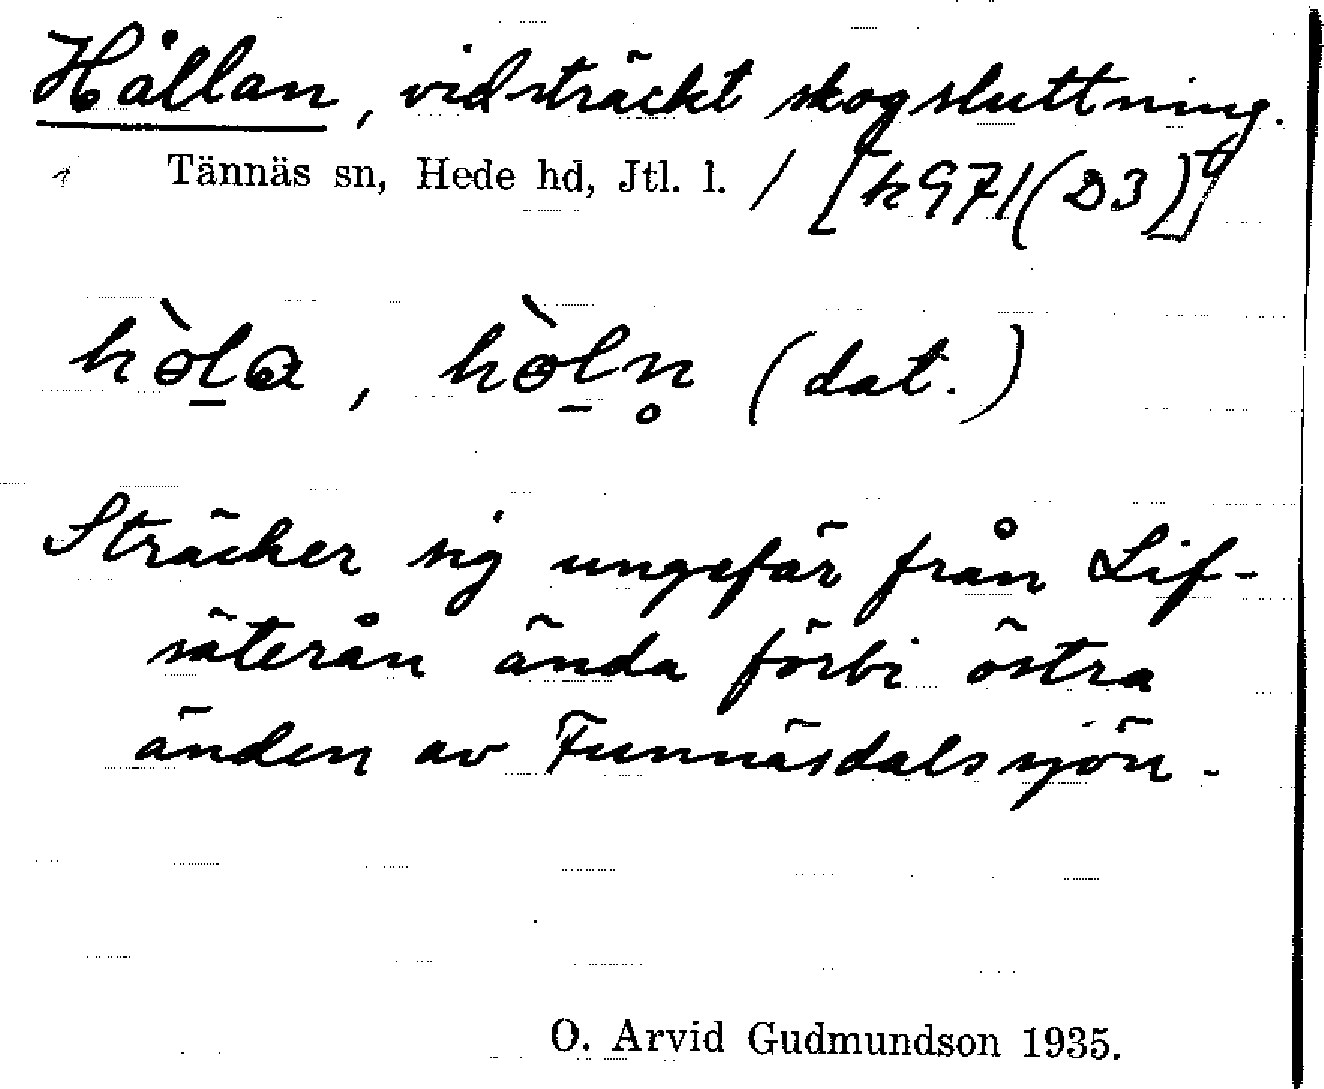 Hållan, vidsträckt skogsluttning.
Tännäs sn, Hede hd, Jtl. l. / [k971(D3)]
hòla, hòln̥ (dat.)
Sträcker sig ungefär från Lif-
säterån ända förbi östra
änden av Funnäsdalssjön.
O. Arvid Gudmundson 1935.